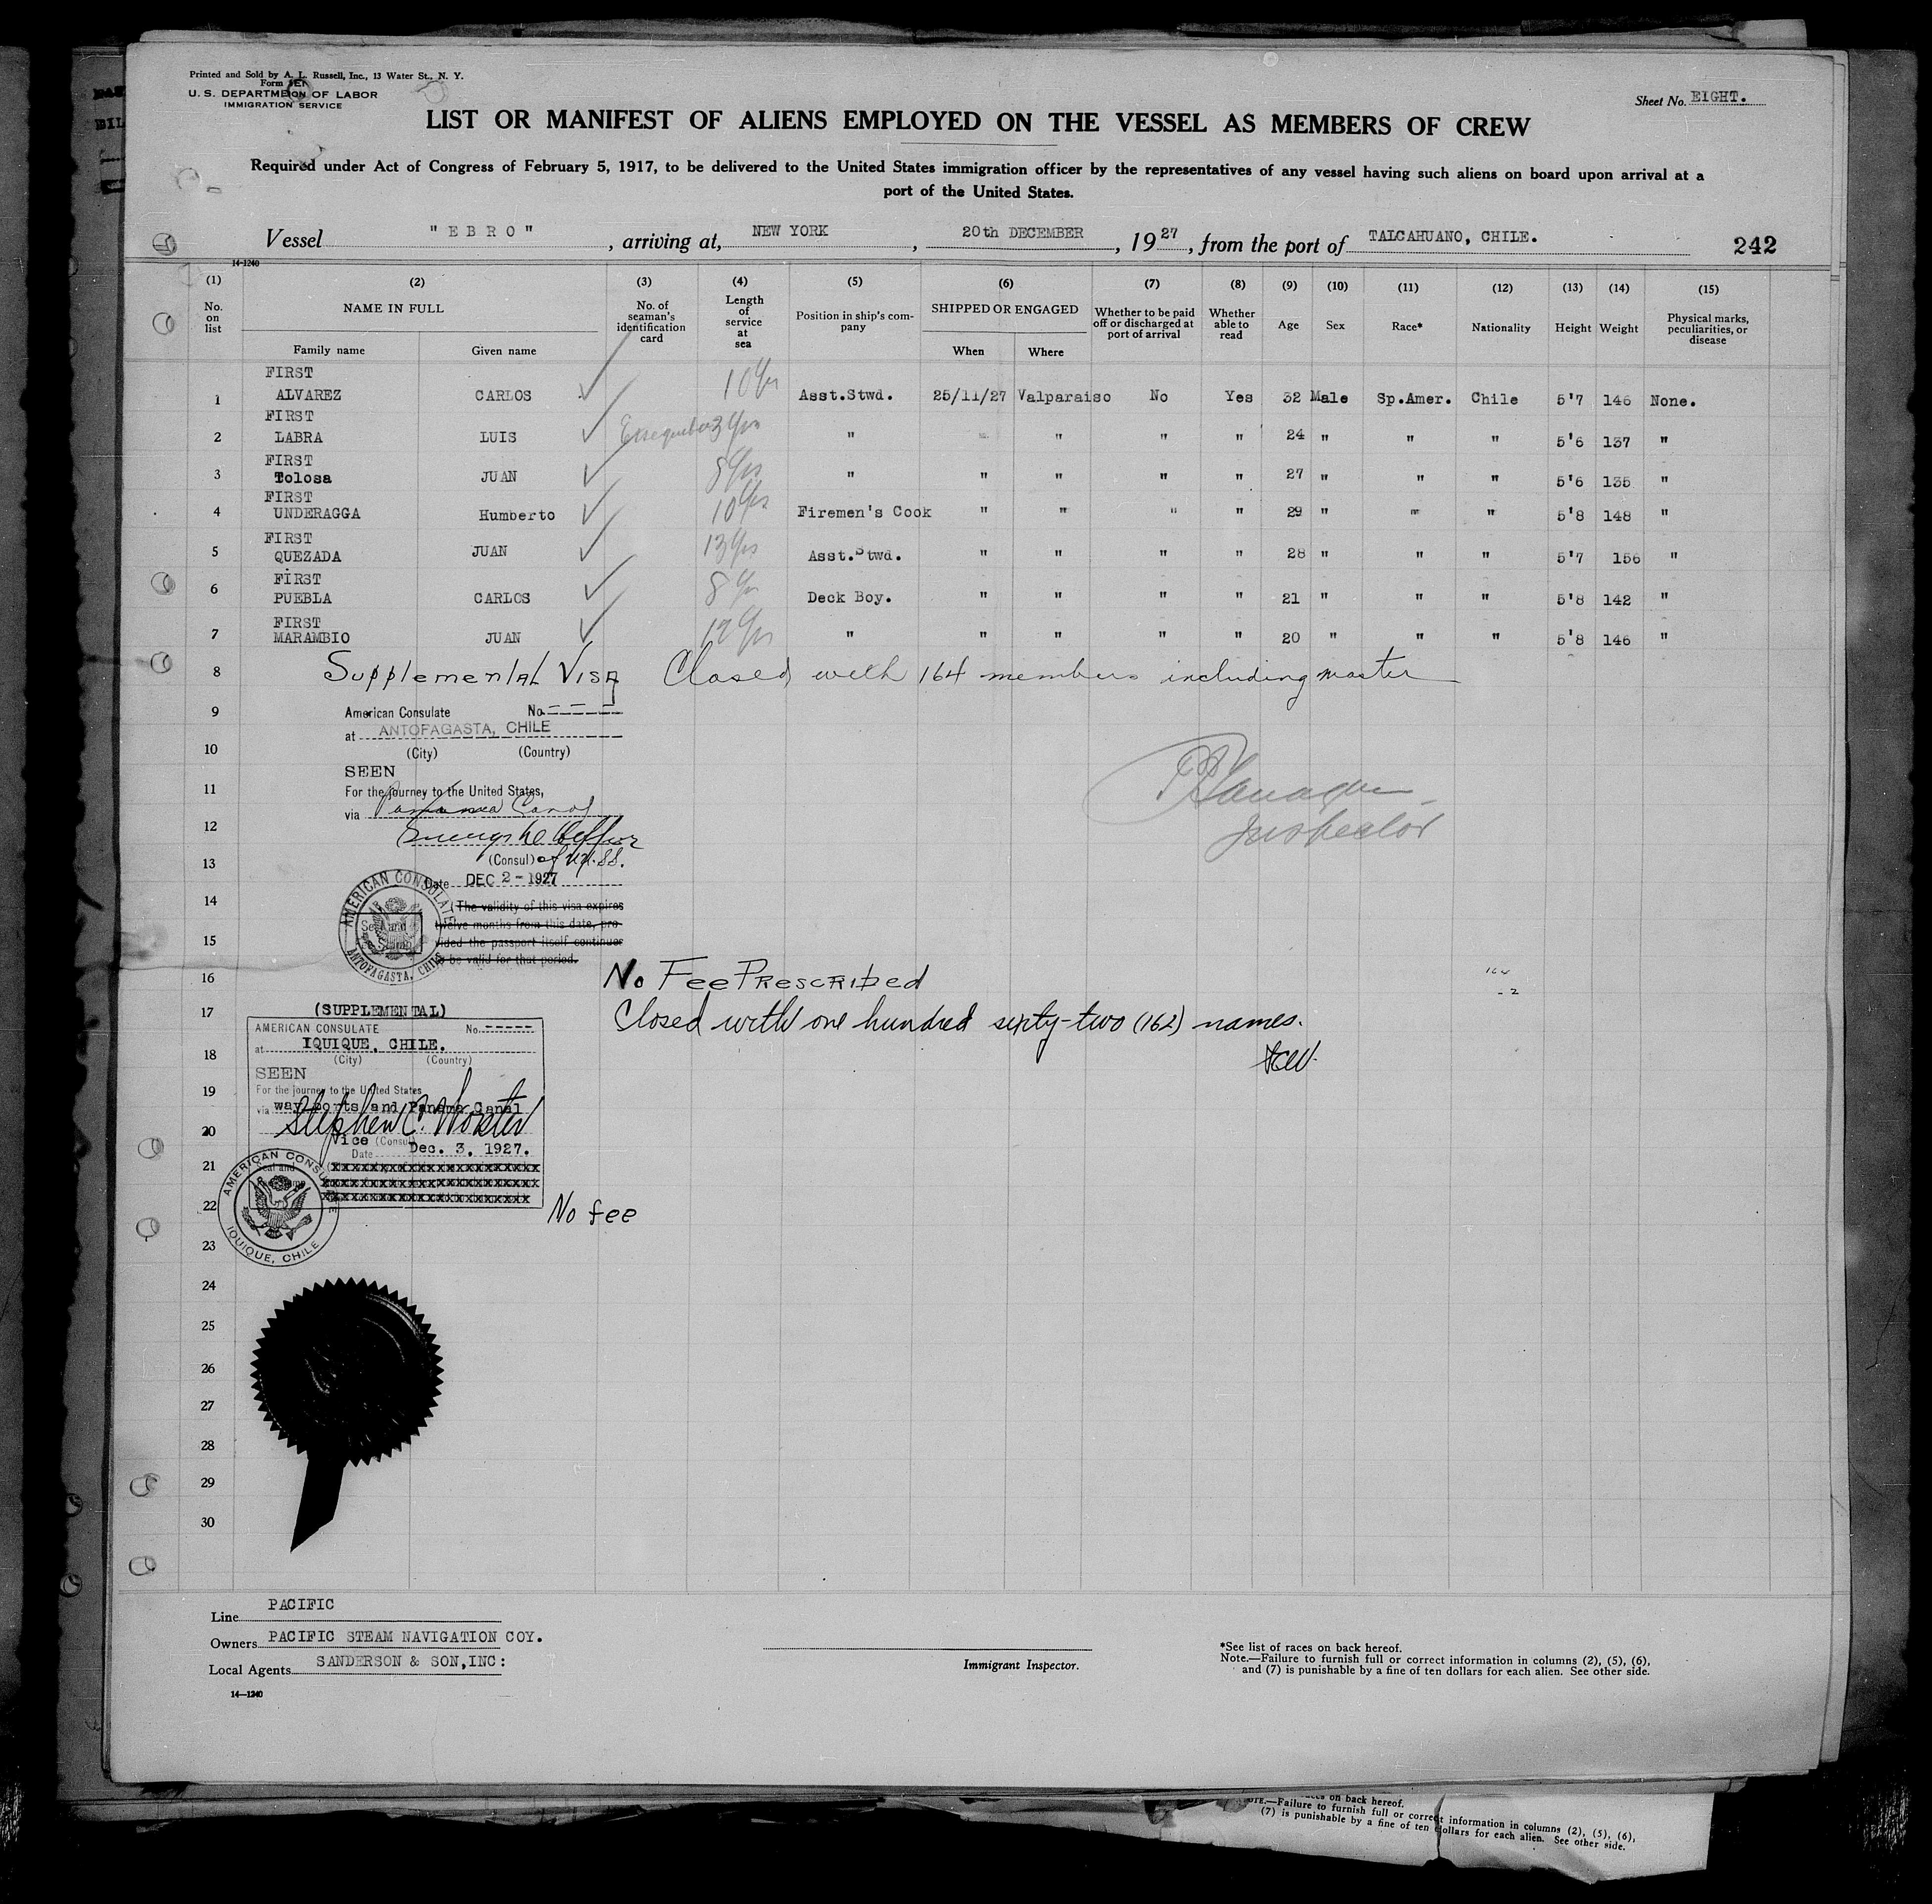 Printed and Sold by A. L. Russell, Inc., 13 Water St., N. Y.
Form
U. S. DEPARTMEION OF LABOR
IMMIGRATION SERVICE
Sheet No. EIGHT.
LIST OR MANIFEST OF ALIENS EMPLOYED ON THE VESSEL AS MEMBERS OF CREW
Required under Act of Congress of February 5, 1917, to be delivered to the United States immigration officer by the representatives of any vessel having such aliens on board upon arrival at a
port of the United States.
Vessel "EBRO", arriving at, NEW YORK, 20th DECEMBER, 1927, from the port of TALCAHUANO, CHILE. 242
14-1240
(1) (2) (3) (4) (5) (6) (7) (8) (9) (10) (11) (12) (13) (14) (15)
No. on list
NAME IN FULL
Family name Given name
No. of seaman's identification card
Length of service at sea
Position in ship's company
SHIPPED OR ENGAGED
When Where
Whether to be paid off or discharged at port of arrival
Whether able to read
Age Sex Race* Nationality Height Weight
Physical marks, peculiarities, or disease
FIRST
1 ALVAREZ CARLOS 10 Yrs Asst.Stwd. 25/11/27 Valparaiso No Yes 32 Male Sp.Amer. Chile 5'7 146 None.
FIRST
2 LABRA LUIS Essequibo 3 Yrs " " " " " 24 " " " 5'6 137 "
FIRST
3 Tolosa JUAN 8 Yrs " " " " " 27 " " " 5'6 135 "
FIRST
4 UNDERAGGA Humberto 10 Yrs Firemen's Cook " " " " 29 " " " 5'8 148 "
FIRST
5 QUEZADA JUAN 13 Yrs Asst.Stwd. " " " " 28 " " " 5'7 156 "
FIRST
6 PUEBLA CARLOS 8 Yrs Deck Boy. " " " " 21 " " " 5'8 142 "
FIRST
7 MARAMBIO JUAN 12 Yrs " " " " " 20 " " " 5'8 146 "
8 Supplemental Visa Closed with 164 members including master
9 American Consulate No. - - - -
at ANTOFAGASTA, CHILE
10 (City) (Country)
SEEN
11 For the journey to the United States,
via Panama Canal
12
Inspector
13 (Consul) of U.S.
Date DEC 2 - 1927
14 (The validity of this visa expires
twelve months from this date, pro-
15 vided the passport itself continues
to be valid for that period.
AMERICAN CONSULATE
Seal and Stamp
ANTOFAGASTA, CHILE
16 No Fee Prescribed
- 2
17 Closed with one hundred sixty-two (162) names.
(SUPPLEMENTAL)
AMERICAN CONSULATE No. -----
at IQUIQUE, CHILE.
18 (City) (Country)
SEEN
19 For the journey to the United States
via way ports and Panama Canal
20 Stephen C. Worster
Vice (Consul)
Date Dec. 3, 1927.
21 xxxxxxxxxxxxxxxxxxxxxxxx
xxxxxxxxxxxxxxxxxxxxxxxx
22 xxxxxxxxxxxxxxxxxxxxxxx
AMERICAN CONSULATE
IQUIQUE, CHILE
No fee
23
24
25
26
27
28
29
30
Line PACIFIC
Owners PACIFIC STEAM NAVIGATION COY.
Local Agents SANDERSON & SON,INC:
14—1240
Immigrant Inspector.
*See list of races on back hereof.
Note.—Failure to furnish full or correct information in columns (2), (5), (6),
and (7) is punishable by a fine of ten dollars for each alien. See other side.
races on back hereof.
Note.—Failure to furnish full or correct information in columns (2), (5), (6),
(7) is punishable by a fine of ten dollars for each alien. See other side.